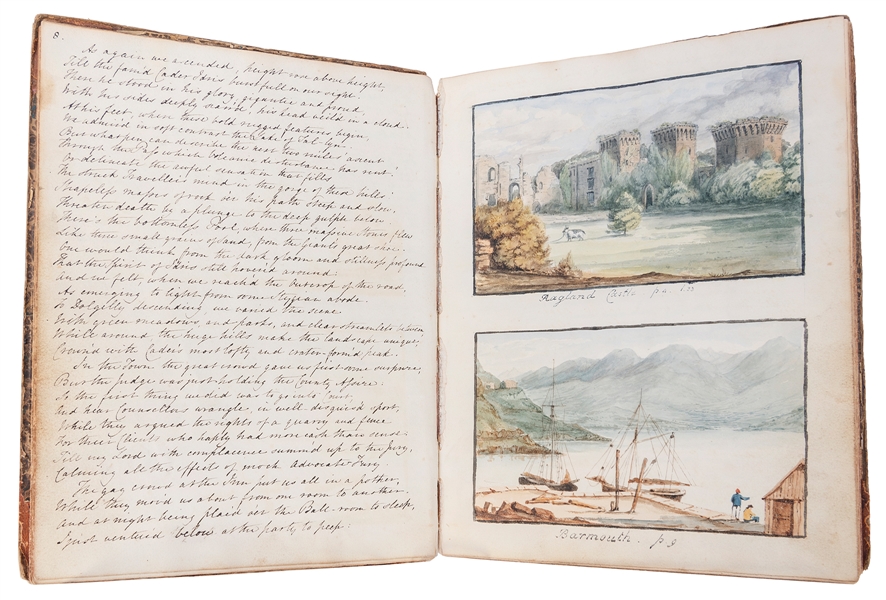 8.
As again we ascended, height rose above height,
Till the fam'd Cader Idris burst full on our sight.
Then he stood in his glory, gigantic and proud,
With his sides deeply scar'd, his head veil'd in a cloud.
At his feet, when these bold rugged features begin,
We admir'd in soft contrast the Lake of Tal-lyn.
But what pen can describe the next two miles ascent
Through the Pass which Volcanic disturbance has rent!
Or delineate the awful sensation that fills
The struck Traveller's mind in the gorge of these hills!
Shapeless masses of rock o'er his path steep and slow,
Threaten death by a plunge to the deep gulph below.
There's the bottomless Pool, where three massive Stones fell
Like three small grains of Sand, from the Giant's great shoe.
One would think from the dark gloom and stillness profound
That the Spirit of Idris still hover'd around:
And we felt, when we reach'd the outcrop of the road
As emerging to light from some Stygian abode.
To Dolgelly descending, we varied the scene
With green meadows and parks, and clear streamlets between,
While around the huge hills make the landscape unique,
Crown'd with Cader's most lofty and crater-form'd peak.
In the Town the great crowd gave us just some surprise,
But the Judge was just holding the County Assize.
So the first thing we did was to go into Court,
And hear Counsellors wrangle, in well disguis'd sport,
While they argued the rights of a quarry and fence
For their Clients who haply had more cash than sense.
Till my Lord with complacence summ'd up to the Jury,
Calming all the effects of mock Advocate Fury.
The gay crowd at the Inn put us all in a pother,
While they mov'd us about from one room to another.
And at night being plac'd o'er the Ball-room to sleep,
I just ventured below at the party to peep:
Ragland Castle p.
Barmouth. p 9